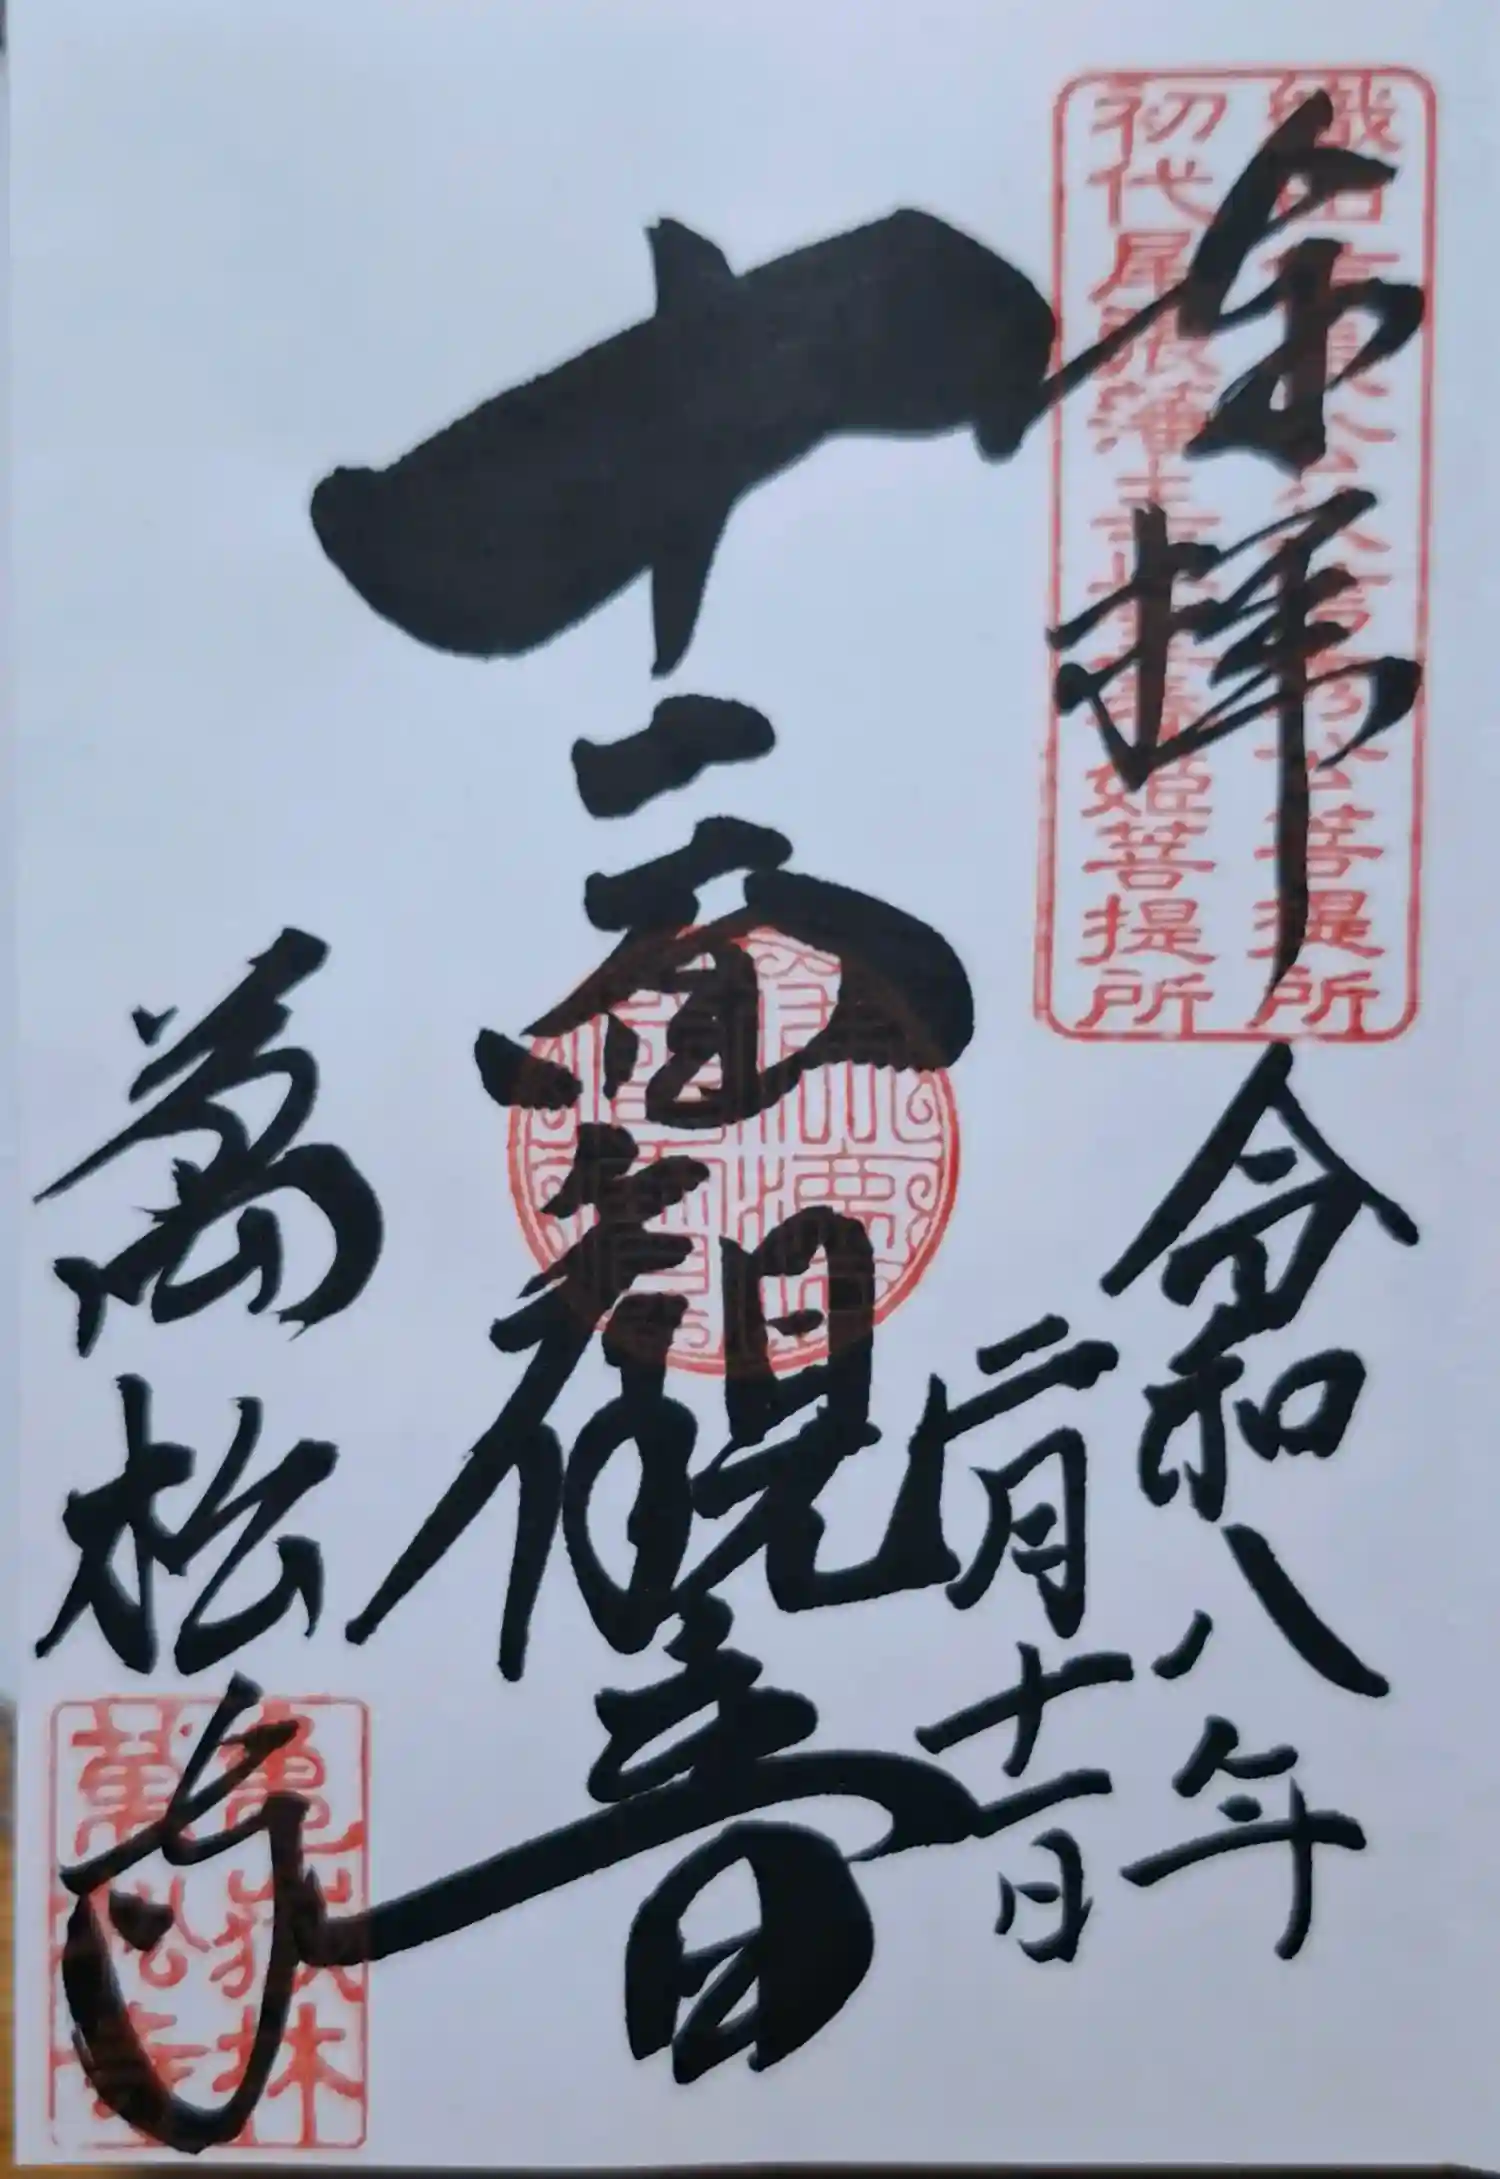 織田信長公父信秀公菩提所
初代尾張藩主正室春姫菩提所
奉拝
令和八年
二月十一日
十一面観音
萬松寺
亀嶽林
萬松寺